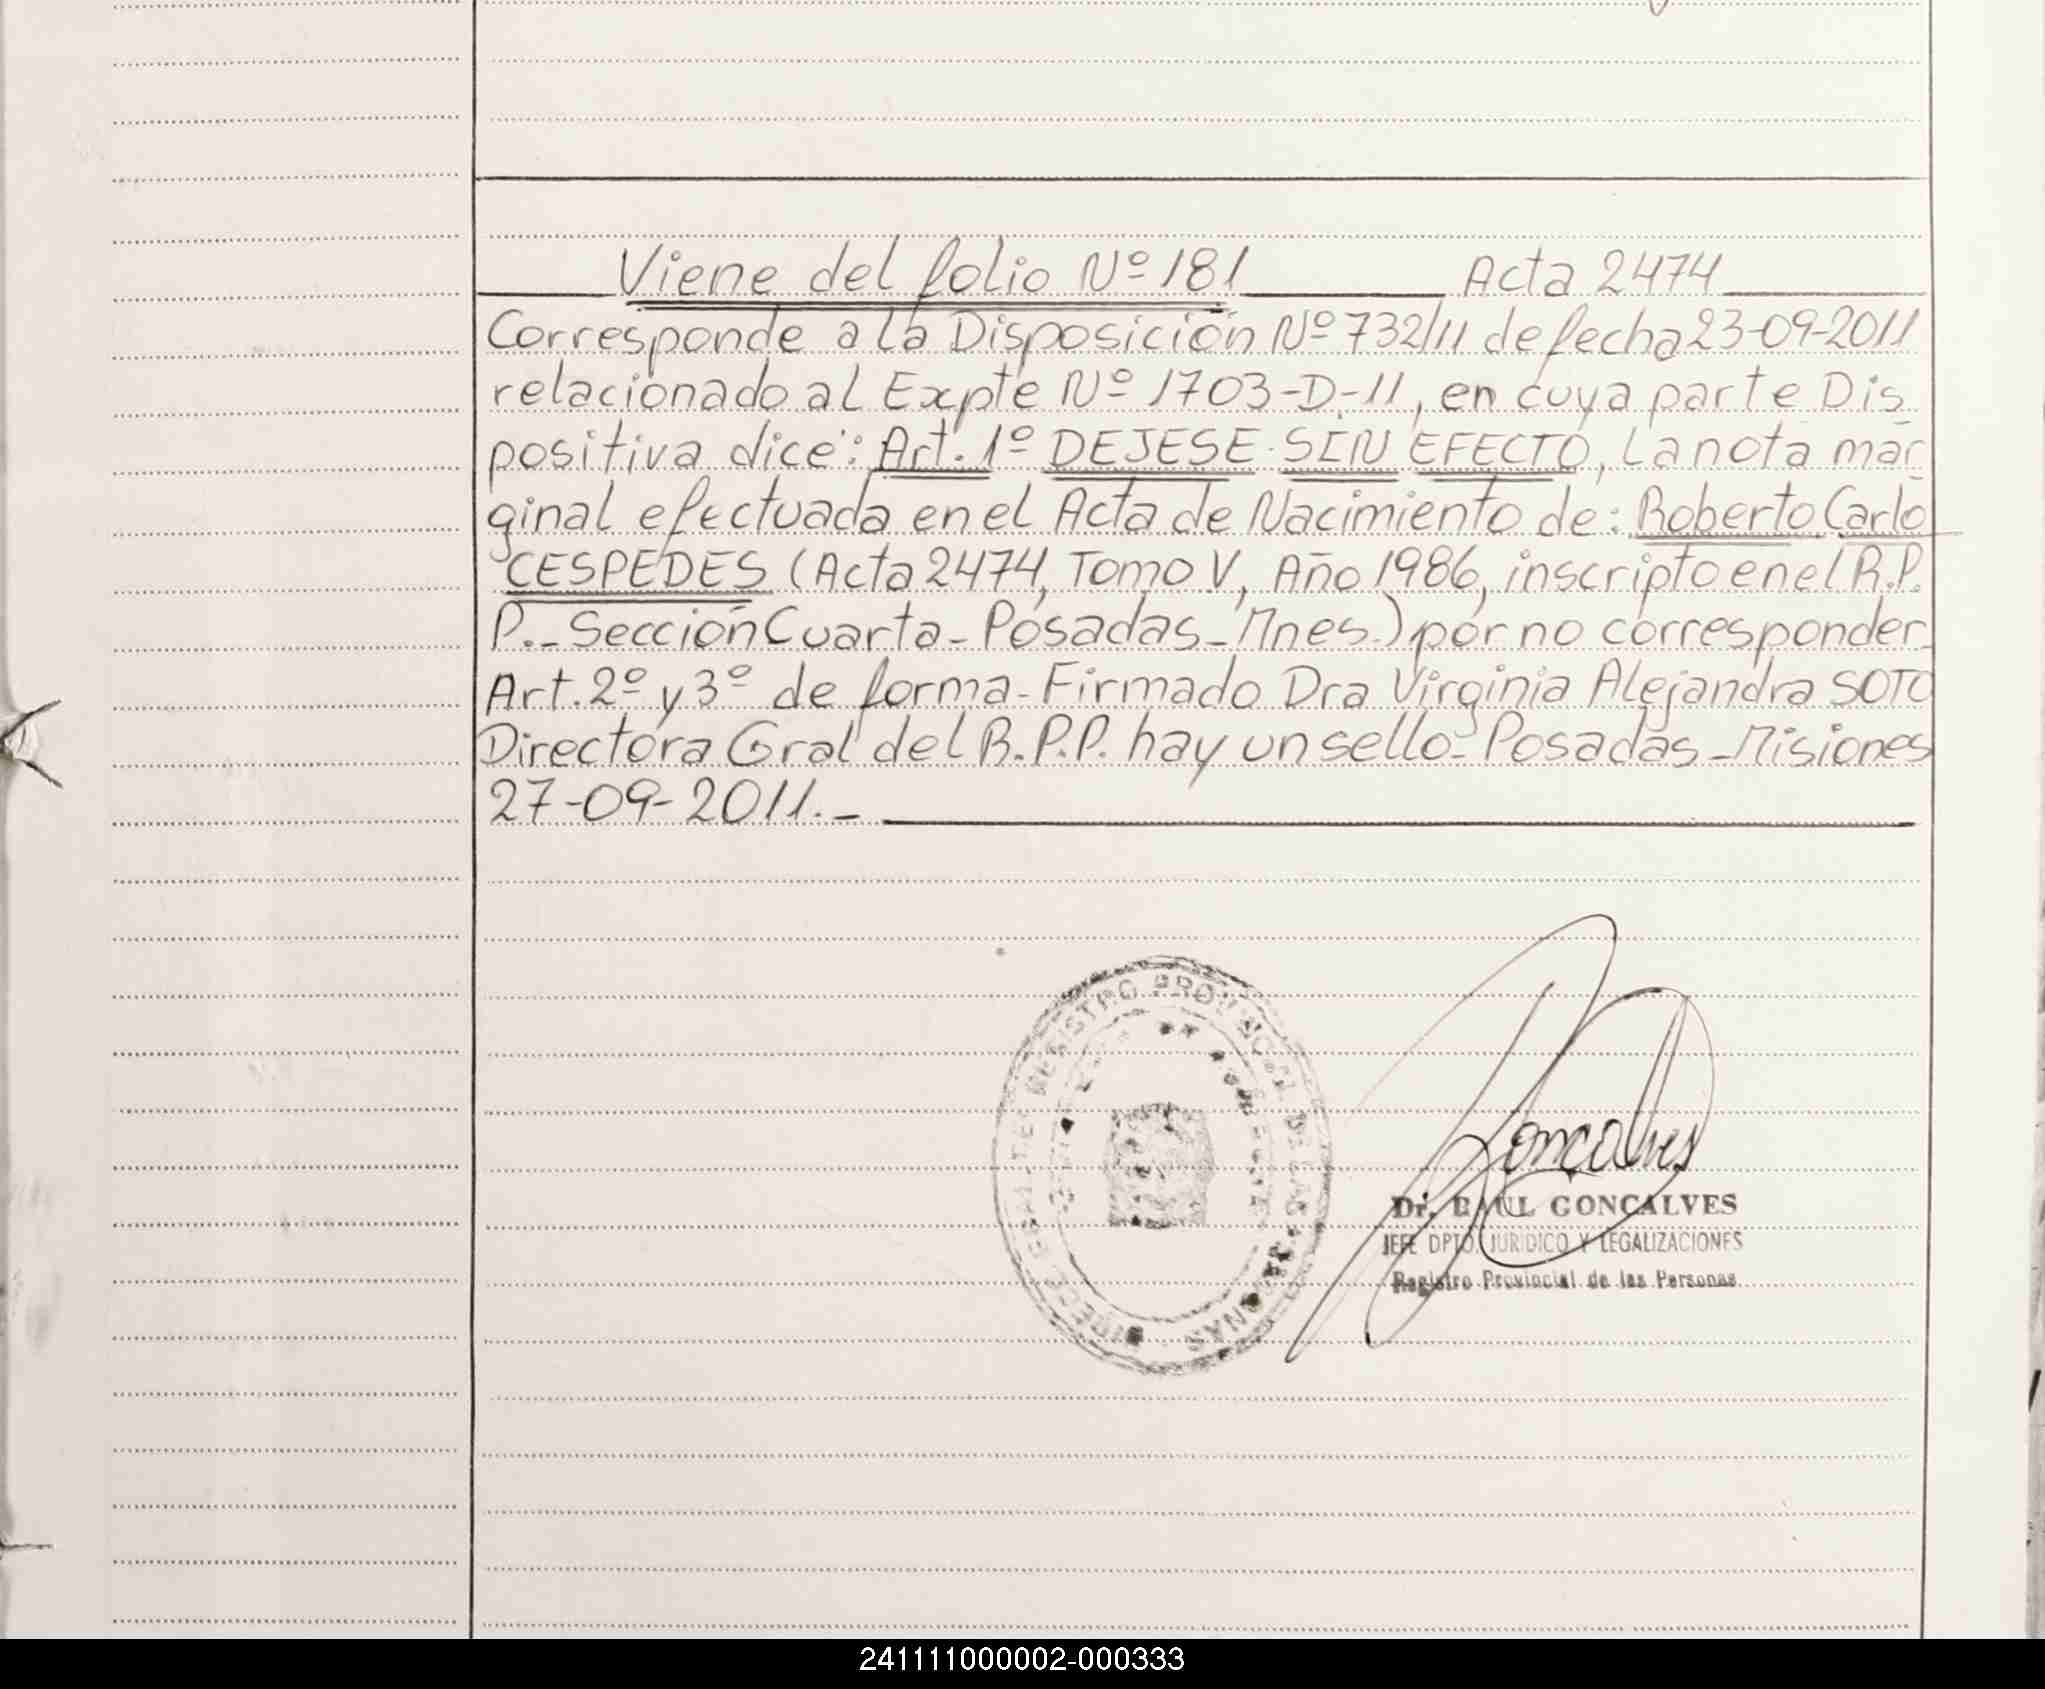 Viene del folio Nº 181 Acta 2474
Corresponde a la Disposición Nº 732/11 de fecha 23-09-2011
relacionado al Expte Nº 1703-D-11, en cuya parte Dis
positiva dice: Art. 1º DEJESE SIN EFECTO, La nota mar
ginal efectuada en el Acta de Nacimiento de: Roberto Carlo
CESPEDES (Acta 2474, Tomo V, Año 1986, inscripto en el R.P.
P.-Sección Cuarta-Posadas-Mnes.) por no corresponder-
Art. 2º y 3º de forma-Firmado Dra Virginia Alejandra SOTO
Directora Gral del R.P.P. hay un sello-Posadas-Misiones
27-09-2011.-
REGISTRO PROVINCIAL DE LAS PERSONAS
Goncalves
Dr. RAUL GONCALVES
JEFE DPTO. JURIDICO Y LEGALIZACIONES
Registro Provincial de las Personas
241111000002-000333